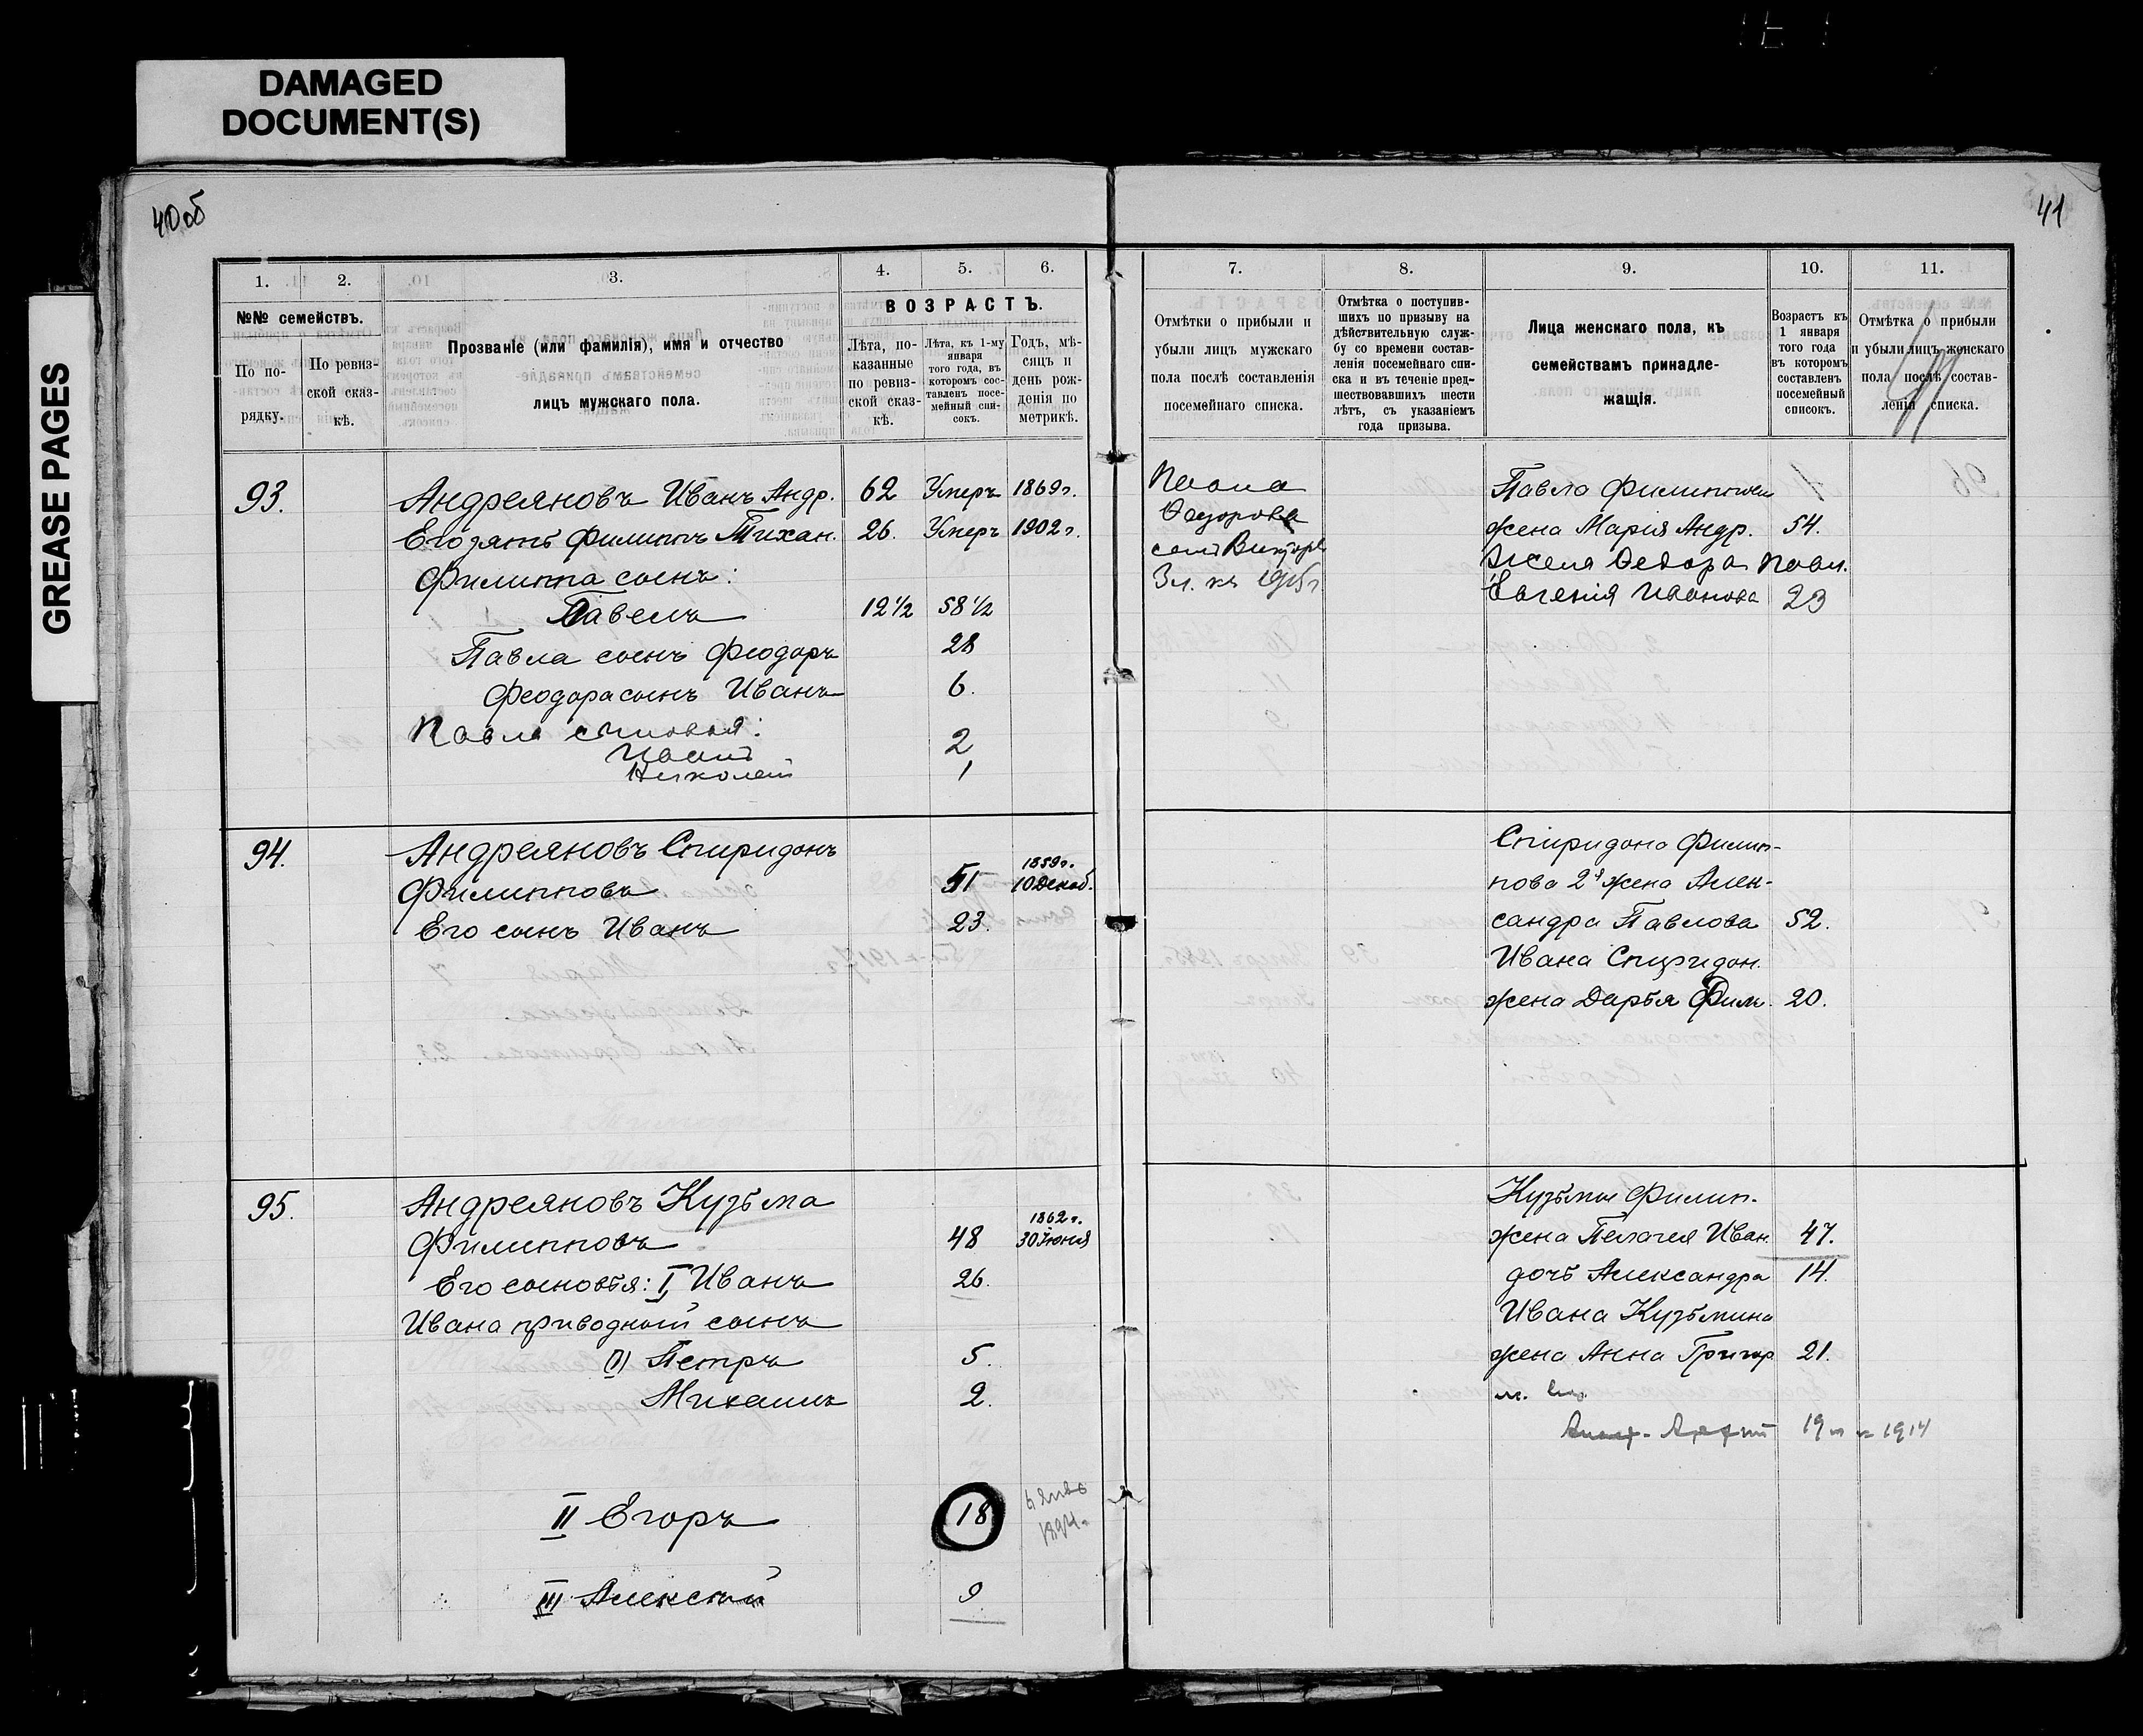 DAMAGED
DOCUMENT(S)
GREASE PAGES
40об
41
1.
2.
3.
4.
5.
6.
№№ семействъ.
По по-
рядку.
По ревиз-
ской сказ-
кѣ.
Прозваніе (или фамилія), имя и отчество
лицъ мужского пола.
ВОЗРАСТЪ.
Лѣта, по-
казанные
по ревиз-
ской сказ-
кѣ.
Лѣта, къ 1-му
января
того года, въ
которомъ сос-
тавленъ посе-
мейный спи-
сокъ.
Годъ, мѣ-
сяцъ и
день рож-
денія по
метрикѣ.
7.
8.
9.
10.
11.
Отмѣтки о прибыли и
убыли лицъ мужскаго
пола послѣ составленія
посемейнаго списка.
Отмѣтка о поступив-
шихъ по призыву на
дѣйствительную служ-
бу со времени состав-
ленія посемейнаго спи-
ска и въ теченіе пред-
шествовавшихъ шести
лѣтъ, съ указаніемъ
года призыва.
Лица женскаго пола, къ
семействамъ принадле-
жащія.
Возрастъ къ
1 января
того года
въ которомъ
составленъ
посемейный
списокъ.
Отмѣтка о прибыли
и убыли лицъ женскаго
пола послѣ состав-
ленія списка.
93. Андреяновъ Иванъ Андр. 62 Умеръ 1869г.
Его зять Филиппъ Тихан. 26. Умеръ 1902г.
Филиппа сынъ:
Павелъ 12½ 58½
Павла сынъ Феодоръ 28
Феодора сынъ Иванъ 6.
Павла сыновья:
Иванъ 2
Николай 1
Павла
Федорова
сынъ Викторъ
3л. къ 1915г.
Павла Филиппова
жена Марія Андр. 54.
Жена Федора Павл.
Евгенія Иванова 23
94. Андреяновъ Спиридонъ
Филипповъ 51 1859г. 10 Декаб.
Его сынъ Иванъ 23.
Спиридона Филип-
пова 2я жена Алек-
сандра Павлова 52.
Ивана Спиридон.
жена Дарья Фил. 20.
95. Андреяновъ Кузьма
Филипповъ 48 1862г. 30 Іюня
Его сыновья: I, Иванъ 26.
Ивана приводной сынъ
Петръ 5.
Михаилъ 2.
II Егоръ 18
1894г.
III Алексѣй 9
Кузьмы Филип.
жена Пелагея Иван. 47.
дочь Александра 14.
Ивана Кузьмина
жена Анна Григор. 21.
1914